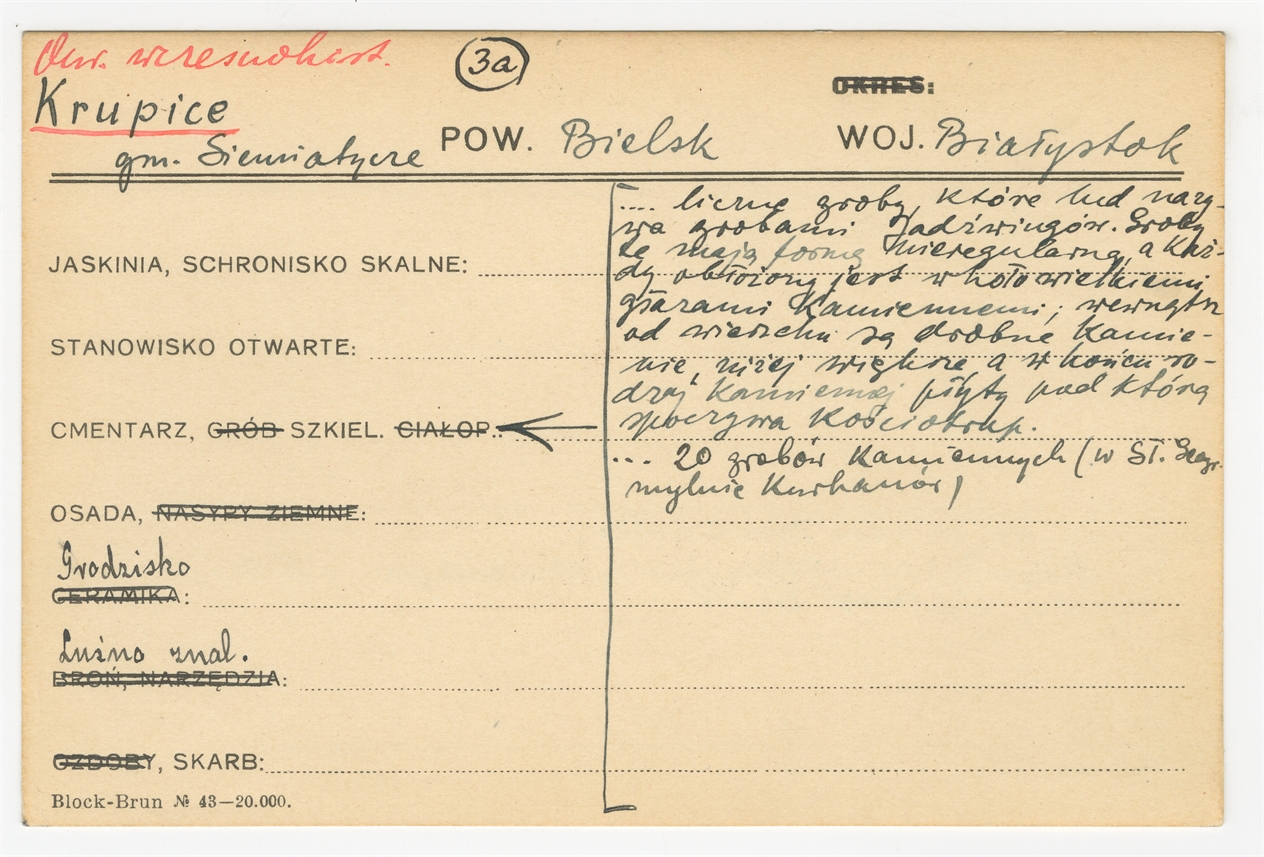 Okr. wczesnohist.
3a
OKRES:
Krupice
gm. Siemiatycze POW. Bielsk WOJ. Białystok
.... liczne groby, które lud nazy-
wa grobami Jadźwingów. Groby
te mają formę nieregularną, a każ-
dy obłożony jest w koło wielkiemi
głazami kamiennemi; wewnątrz
od wierzchu są drobne kamie-
nie, niżej większe, a w końcu ro-
dzaj kamiennej płyty pod którą
spoczywa kościotrup.
... 20 grobów kamiennych (w Sł. Geogr.
mylnie kurhanów)
JASKINIA, SCHRONISKO SKALNE:
STANOWISKO OTWARTE:
CMENTARZ, GRÓB SZKIEL. CIAŁOP.:
OSADA, NASYPY ZIEMNE:
Grodzisko
CERAMIKA:
Luźno znal.
BROŃ, NARZĘDZIA:
OZDOBY, SKARB:
Block-Brun № 43—20.000.